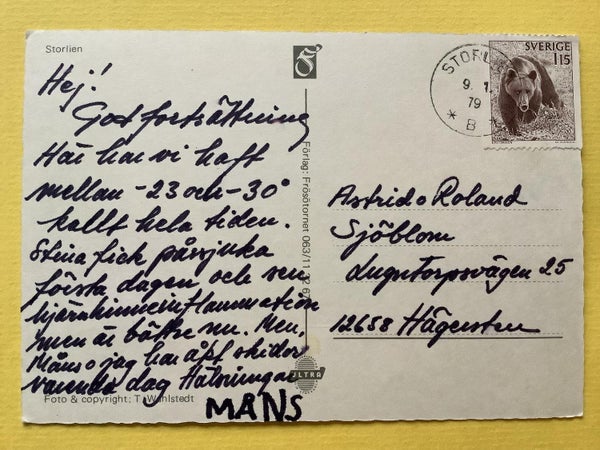 Storlien
Hej!
God fortsättning
Här har vi haft
mellan -23 och -30°
kallt hela tiden.
Stina fick påssjuka
första dagen och sen
hjärnhinneinflammation
men är bättre nu. Men,
Måns o jag har åkt skidor
varenda dag Hälsningar
MÅNS
Foto & copyright: T. Wahlstedt
Förlag: Frösötornet 063/11
ULTRA
STORLIEN
9. 1.
79
* B
SVERIGE
115
Astrid o Roland
Sjöblom
Lugntorpsvägen 25
12658 Hägersten